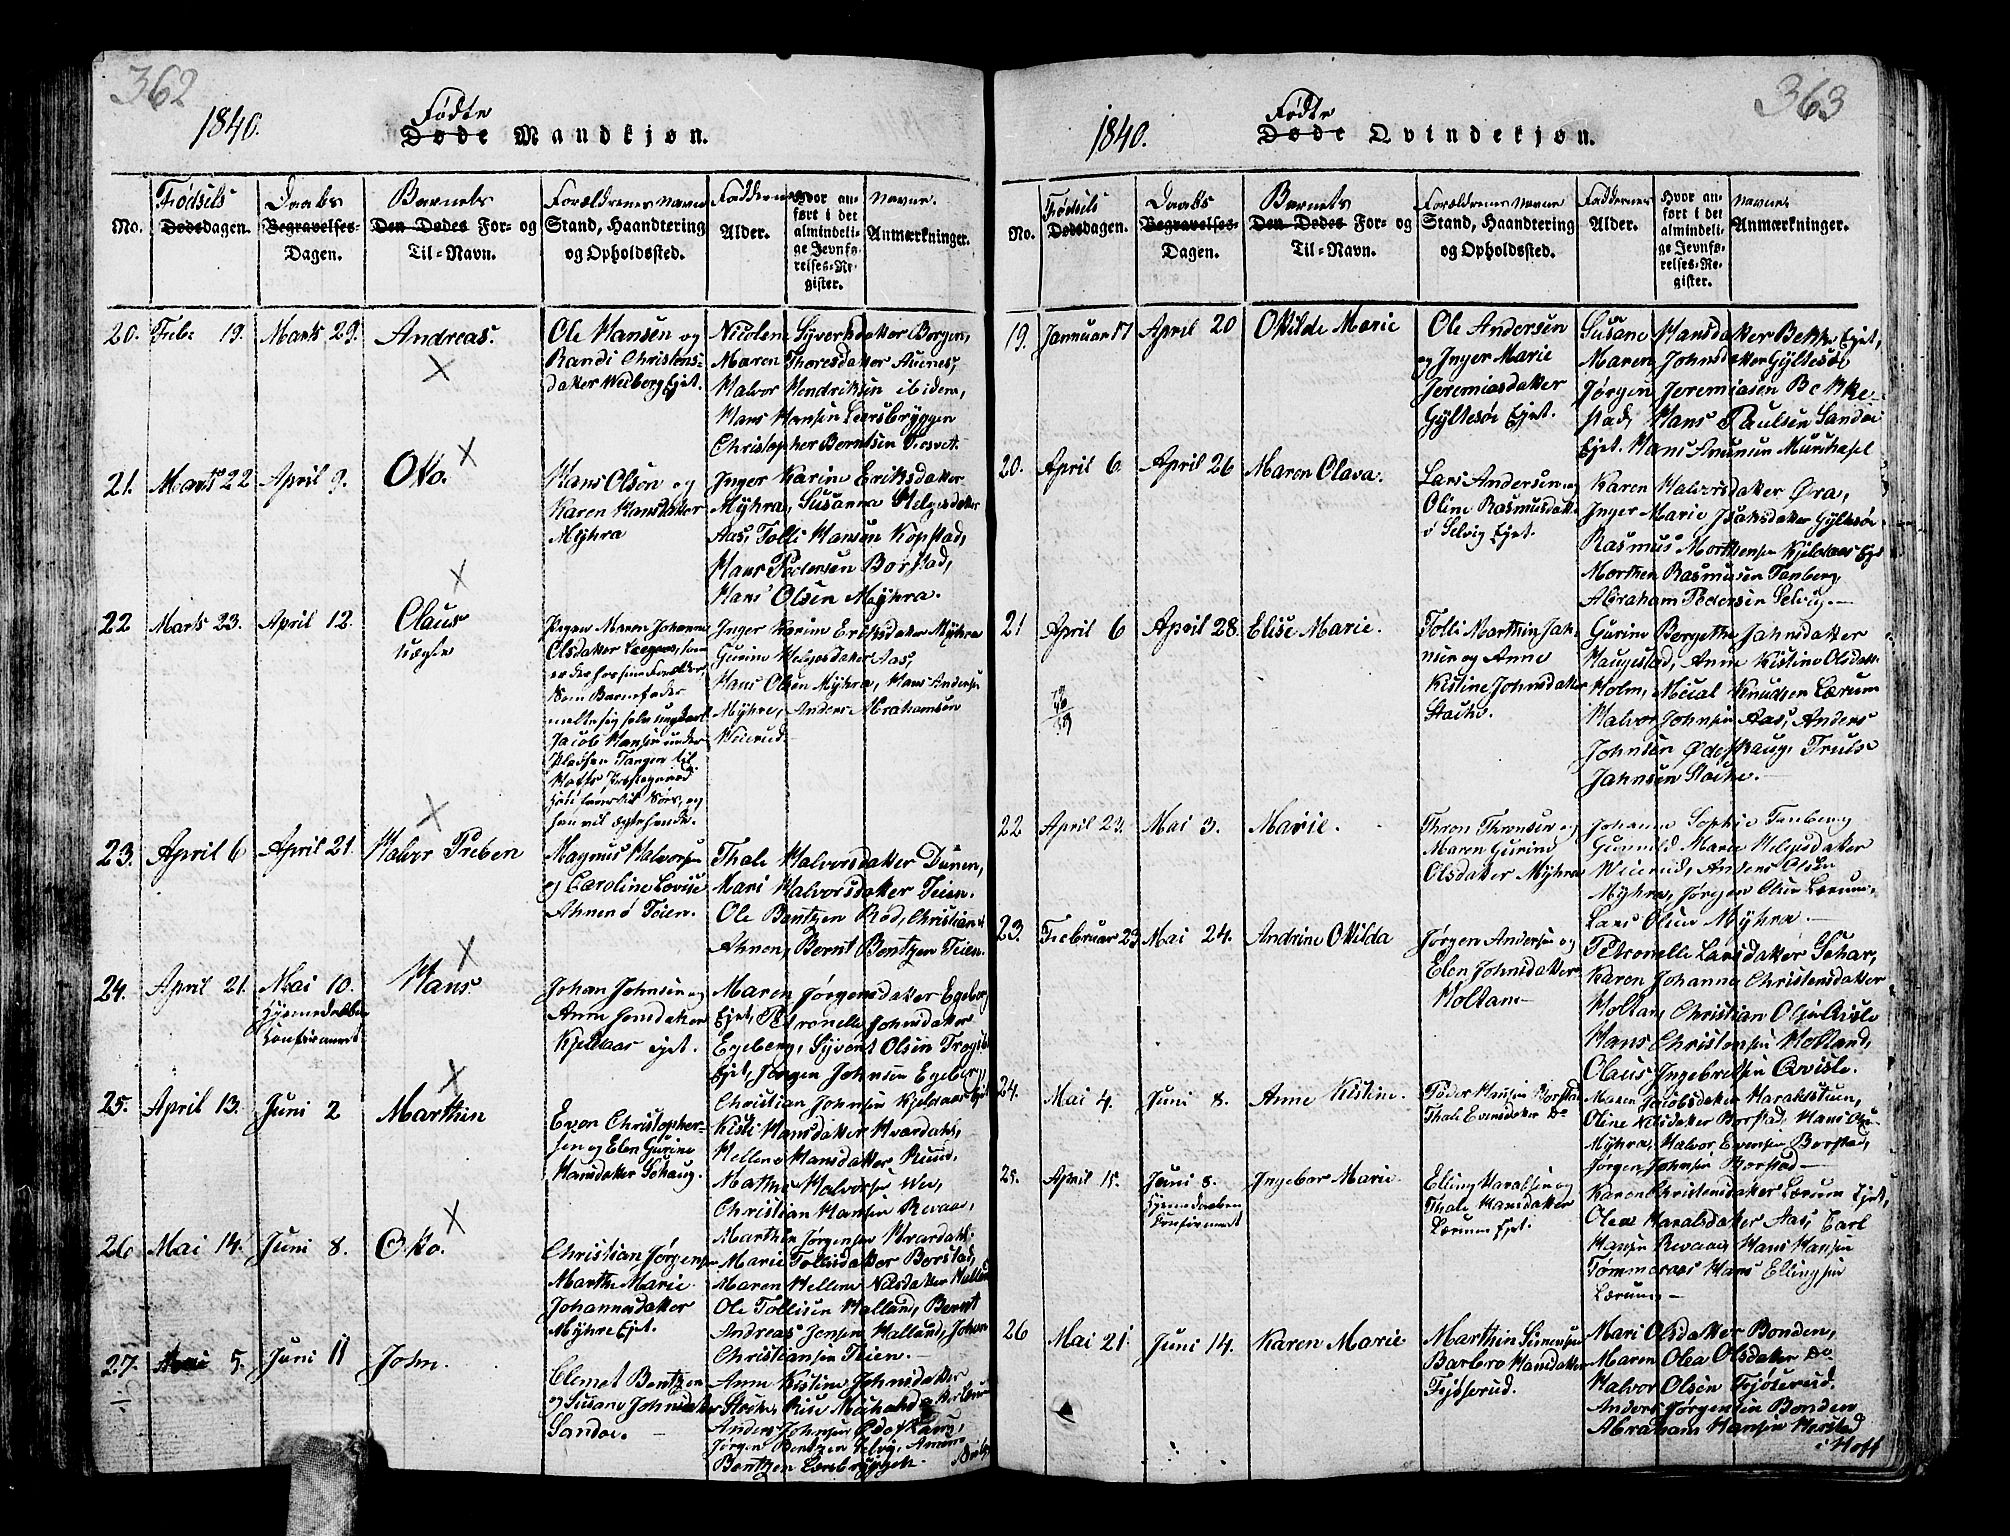 362
1840.
Fødte
Døde Mandkjøn.
No.
Fødsels
Dødsdagen.
Daabs
Begravelses-
Dagen.
Barnets
Den Dødes For- og
Til-Navn.
Forældrenes Navne
Stand, Haandtering
og Opholdssted.
Faddernes
Alder.
Hvor an-
ført i det
almindeli-
ge Jevnfø-
relses-Re-
gister.
Navne.
Anmærkninger.
20. Febr 19. Marts 29. Andreas.
Ole Hansen og
Randi Christens-
datter Wedberg Ejet.
Nicolene Syvertsdatter Borgen,
Maren Thoresdatter Auenes,
Halvor Hendriksen ibidem,
Hans Hansen Leersbryggen
Christopher Berntsen
21. Marts 22 April 9. Otto.
Hans Olsen og
Karen Hansdatter
Myhra
Inger Karine Eriksdatter
Myhra, Susanna Helgesdatter
Aas, Tolli Hansen Kopstad,
Hans Pedersen Borstad,
Hans Olsen Myhra.
22 Marts 23. April 12. Claus
uægte
Pigen Maren Johanne
Olsdatter
er der hos sine Forældre,
Som Barnefader
meldte sig selv ungkarl
Jacob Hansen under
Pladsen Tangen til
Inger Karine Eriksdatter Myhra
Gurine Helgesdatter Aas,
Hans Olsen Myhra, Hans Andersen
Myhre, Anders Abrahamsen
Weierud
23. April 6 April 21. Halvor Preben
Magnus Halvorsen
og Caroline Lovise
Ahnen ø Teien.
Thale Halvorsdatter Dunen,
Mari Halvorsdatter Teien.
Ole Bentzen Rød, Christian
Ahnen, Bernt Bentzen Teien.
24. April 21. Mai 10. Hans
Hjemmedøbt
Confirmeret
Johan Johnsen og
Anne Jensdatter
Kjeldaas ejet.
Maren Jørgensdatter Egeberg
Ejet, Petronelle Johnsdatter
Egeberg, Syvert Olsen
Ejet, Jørgen Johnsen Egeberg,
Christian Johnsen Kjeldaas Ejet
25. April 13. Juni 2 Marthin
Even Christopher-
sen og Elen Gurine
Hansdatter Gohaug.
Kisti Hansdatter Hvardahl,
Hellene Hansdatter Ruud,
Mathis Halvorsen Wee,
Christian Hansen Revaae,
Marthin Jørgensen Hvardahl.
26 Mai 14. Juni 8. Otto.
Christian Jørgens
Marthe Marie
Johannesdatter
Myhre Ejet.
Marie Tollisdatter Borstad,
Maren Hellene Nilsdatter Halland
Ole Tollisen Halland, Bernt
Andreas Jensen Halland, Johan
Christiansen Teien.
27. Mai 5. Juni 11 John.
Clemet Bentzen
og Susane Johnsdatter
Sandøe.
Anne Kistine Johnsdatter
Anders Johnsen Ødeskaug,
Jørgen Bentzen Selvig,
Bentzen Leersbryggen
363
1840.
Fødte
Døde Qvindekjøn.
No.
Fødsels
Dødsdagen.
Daabs
Begravelses-
Dagen.
Barnets
Den Dødes For- og
Til-Navn.
Forældrenes Navne
Stand, Haandtering
og Opholdssted.
Faddernes
Alder.
Hvor an-
ført i det
almindeli-
ge Jevnfø-
relses-Re-
gister.
Navne.
Anmærkninger.
19. Januar 17 April 20 Ottilde Marie
Ole Andersen
og Inger Marie
Jeremiasdatter
Gyltesøe Ejet.
Susane Hansdatter Bekke Ejet,
Maren Johnsdatter Gyltesøe,
Jørgen Jeremiasen Bekke-
stad, Hans Paulsen Sandøe
Ejet. Hans
20. April 6 April 26 Maren Olava.
Lars Andersen og
Oline Rasmusdatt.
ø Selvig Ejet.
Karen Halvorsdatter Øra,
Inger Marie Isaksdatter Gyltesøe
Rasmus Morthensen Kjeldaas Ejet
Morthen Rasmusen Tanberg,
Abraham Pedersen Selvig.
21 April 6 April 28. Elise Marie.
Tolli Marthin Jahn-
sen og Anne
Kistine Johnsdatter
Stocke.
Gurine Borgethe Jahnsdatter
Haugestad, Anne Kistine Olsdatt.
Holm, Knudsen Lærum
Halvor Johnsen Aas, Anders
Johnsen Ødeskaug, Truls
Jahnsen Stocke.
22 April 23. Mai 3. Marie.
Thron Thronsen og
Maren Gurine
Olsdatter Myhra
Johanne Sophie Tanberg
Gunnild Marie Helgesdatter
Weierud, Anders Olsen
Myhra, Jørgen Olsen Lærum,
Lars Olsen Myhra.
23. Februar 23 Mai 24. Andrine Ottilda
Jørgen Andersen og
Elen Johnsdatter
Holtan
Petronelle Larsdatter Gohar,
Karen Johanne Christensdatter
Holtan, Christian Olsen
Hans Christensen Holland,
Claus Ingebretsen Qvisle.
24. Mai 4. Juni 8. Anne Kistine.
Peder Hansen Borstad
Thale Evensdatter Do
Maren Jacobsdatter Haraldstuen,
Oline Nilsdatter Borstad, Hans Olsen
Myhra, Halvor Evensen Borstad,
Jørgen Johnsen Borstad
25. April 15. Juni 8. Ingebor Marie
Hjemmedaaben
Confirmeret
Elling Haralsen og
Thale Hansdatter
Lærum Ejet.
Karen Christensdatter Lærum Ejet,
Olea Haralsdatter Aas, Carl
Hansen Revaae, Hans Hansen
Tømmeraas Hans Ellingsen
Lærum
26 Mai 21 Juni 14. Karen Marie
Marthin Simensen
Barbro Hansdatter
Fjøserud.
Mari Olsdatter Bonden,
Maren Olea Olsdatter Do
Halvor Olsen Fjøserud.
Anders Jørgensen Bonden
Abraham Hansen Harstad
i Hoff